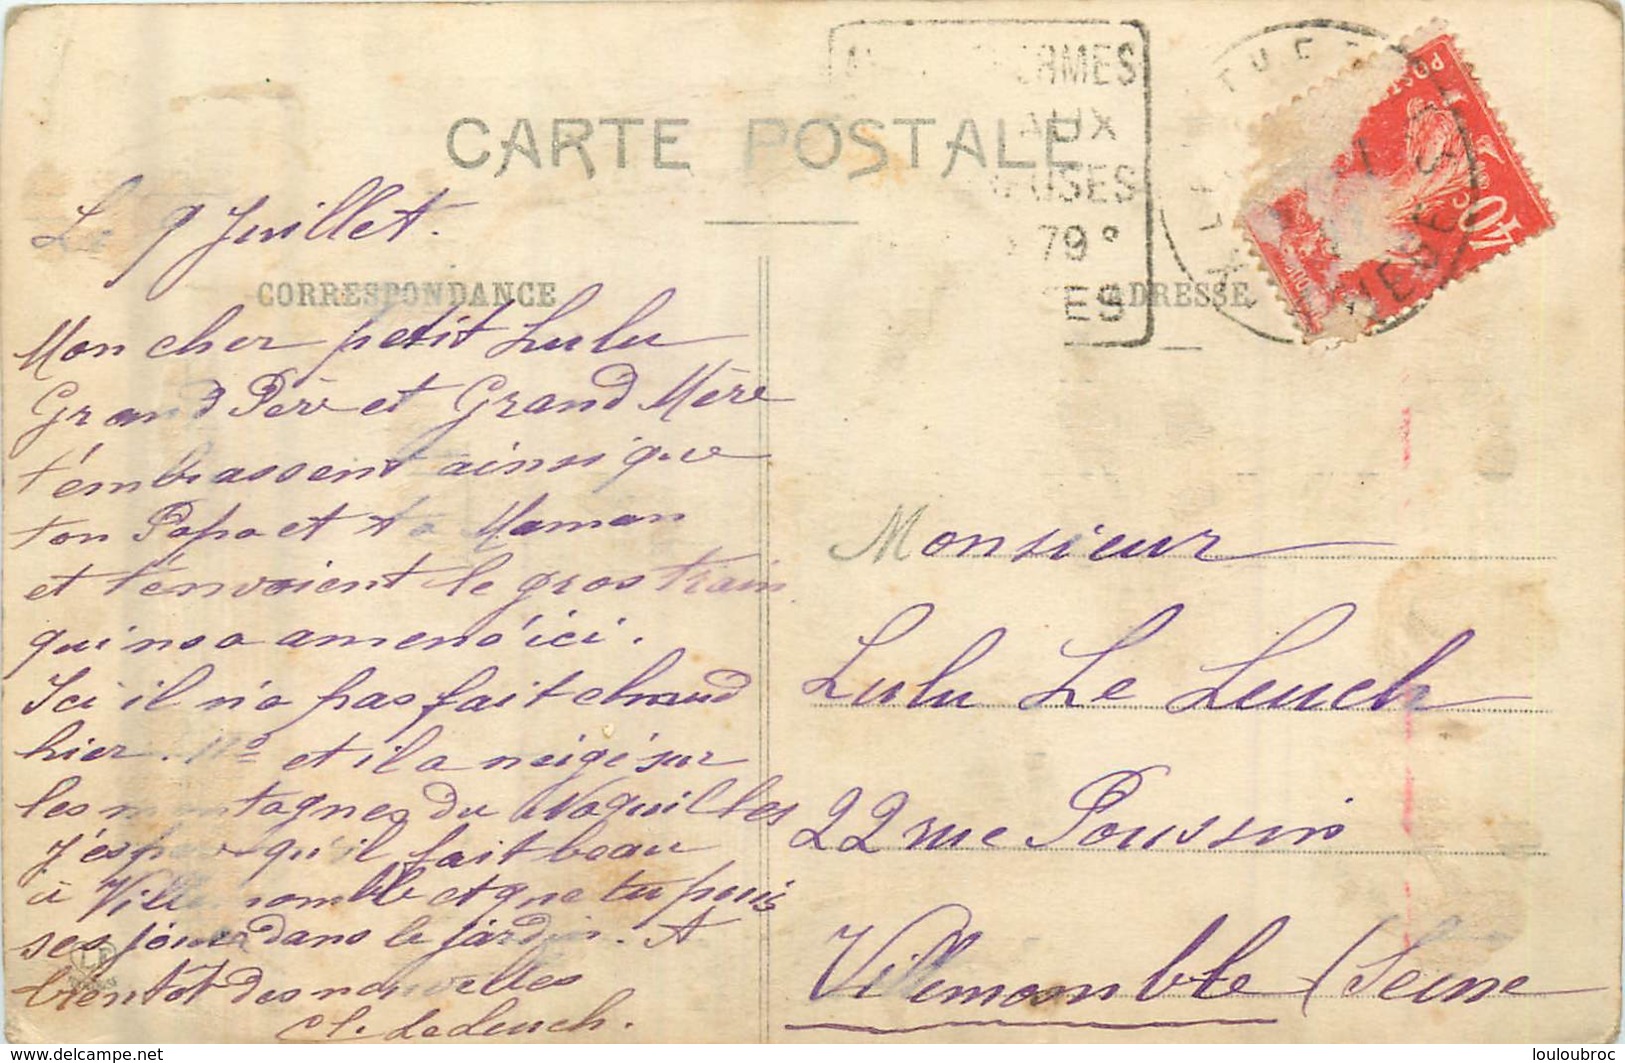 CARTE POSTALE
RMES
AUX
USES
79°
ES
POST
40c
Le 9 Juillet.
CORRESPONDANCE
ADRESSE
Mon cher petit Lulu
Grand Père et Grand Mère
t'embrassent ainsi que
ton Papa et ta Maman
et t'envoient le gros train
qui ns a amené ici.
Ici il n'a pas fait chaud
hier. et il a neigé sur
les montagnes du
J'espère qu'il fait beau
à Villemomble et que tu puis
ses jouer dans le jardin. A
bientôt des nouvelles
Le Leuch.
Monsieur
Lulu Le Leuch
22 rue Poussin
Villemomble (Seine
https://www.delcampe.net
louloubroc